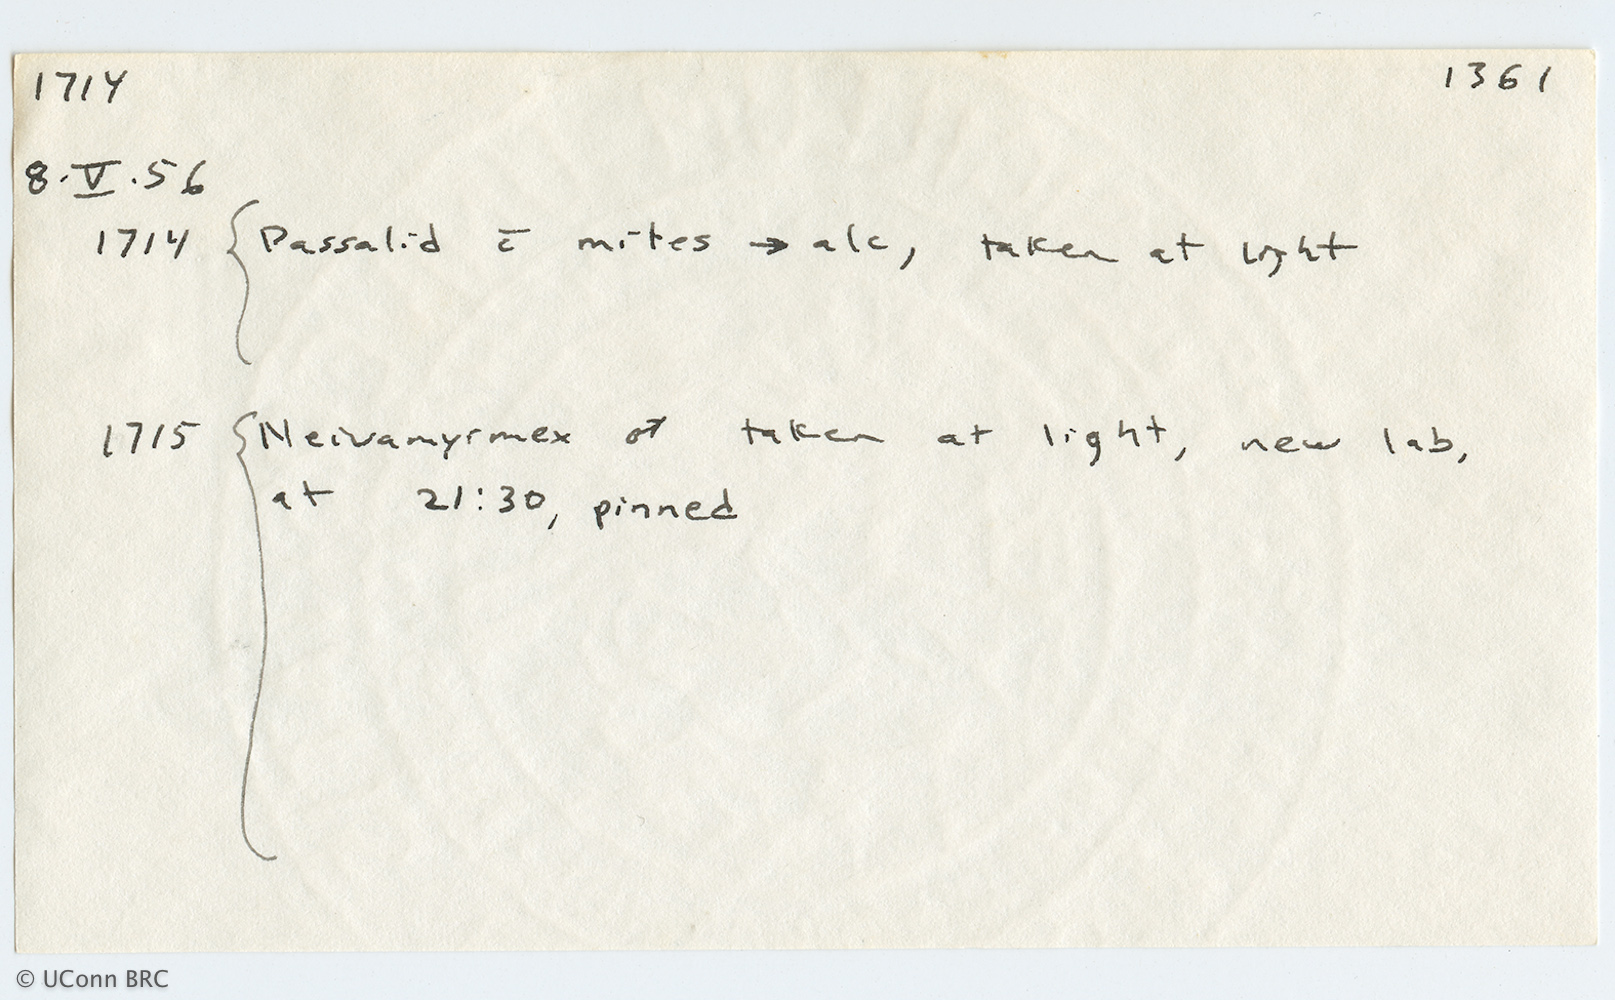 1714 1361
8.V.56
1714 { Passalid c̄ mites → alc, taken at light
1715 { Neivamyrmex ♂ taken at light, new lab,
at 21:30, pinned
© UConn BRC